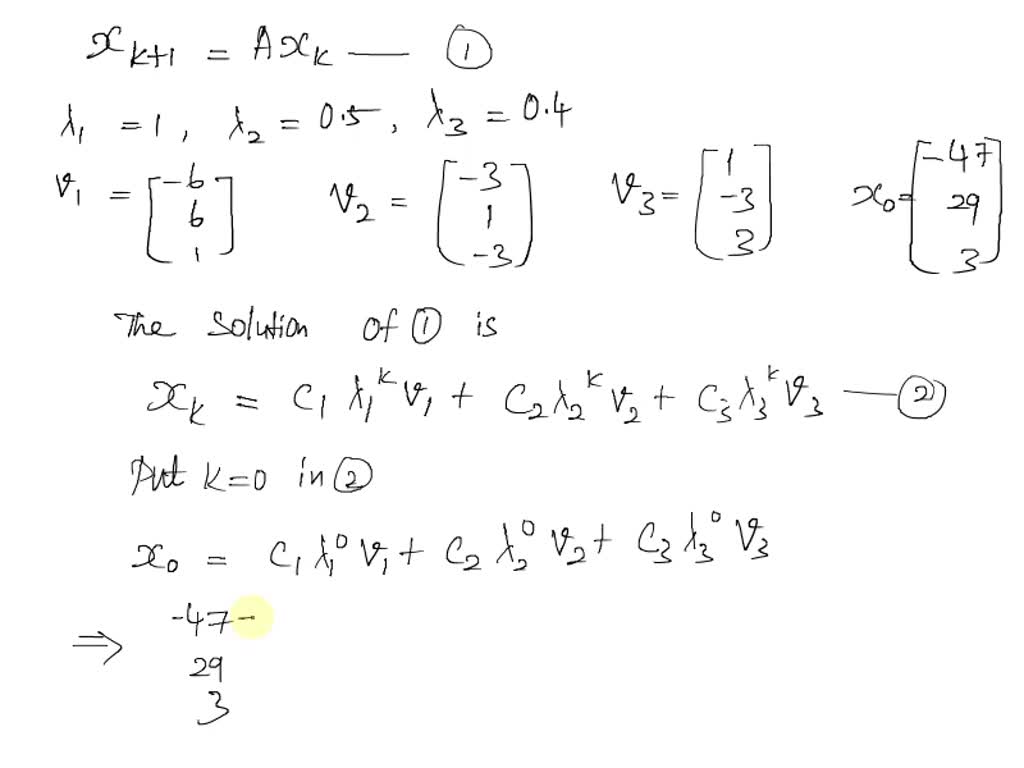 x_{k+1} = A x_k — ①
λ_1 = 1, λ_2 = 0.5, λ_3 = 0.4
v_1 = [-6 6 1] v_2 = [-3 1 -3] v_3 = [1 -3 3] x_0 = [-47 29 3]
The Solution of ① is
x_k = C_1 λ_1^k v_1 + C_2 λ_2^k v_2 + C_3 λ_3^k v_3 — ②
Put k=0 in ②
x_0 = C_1 λ_1^0 v_1 + C_2 λ_2^0 v_2 + C_3 λ_3^0 v_3
⇒ -47 -
29
3